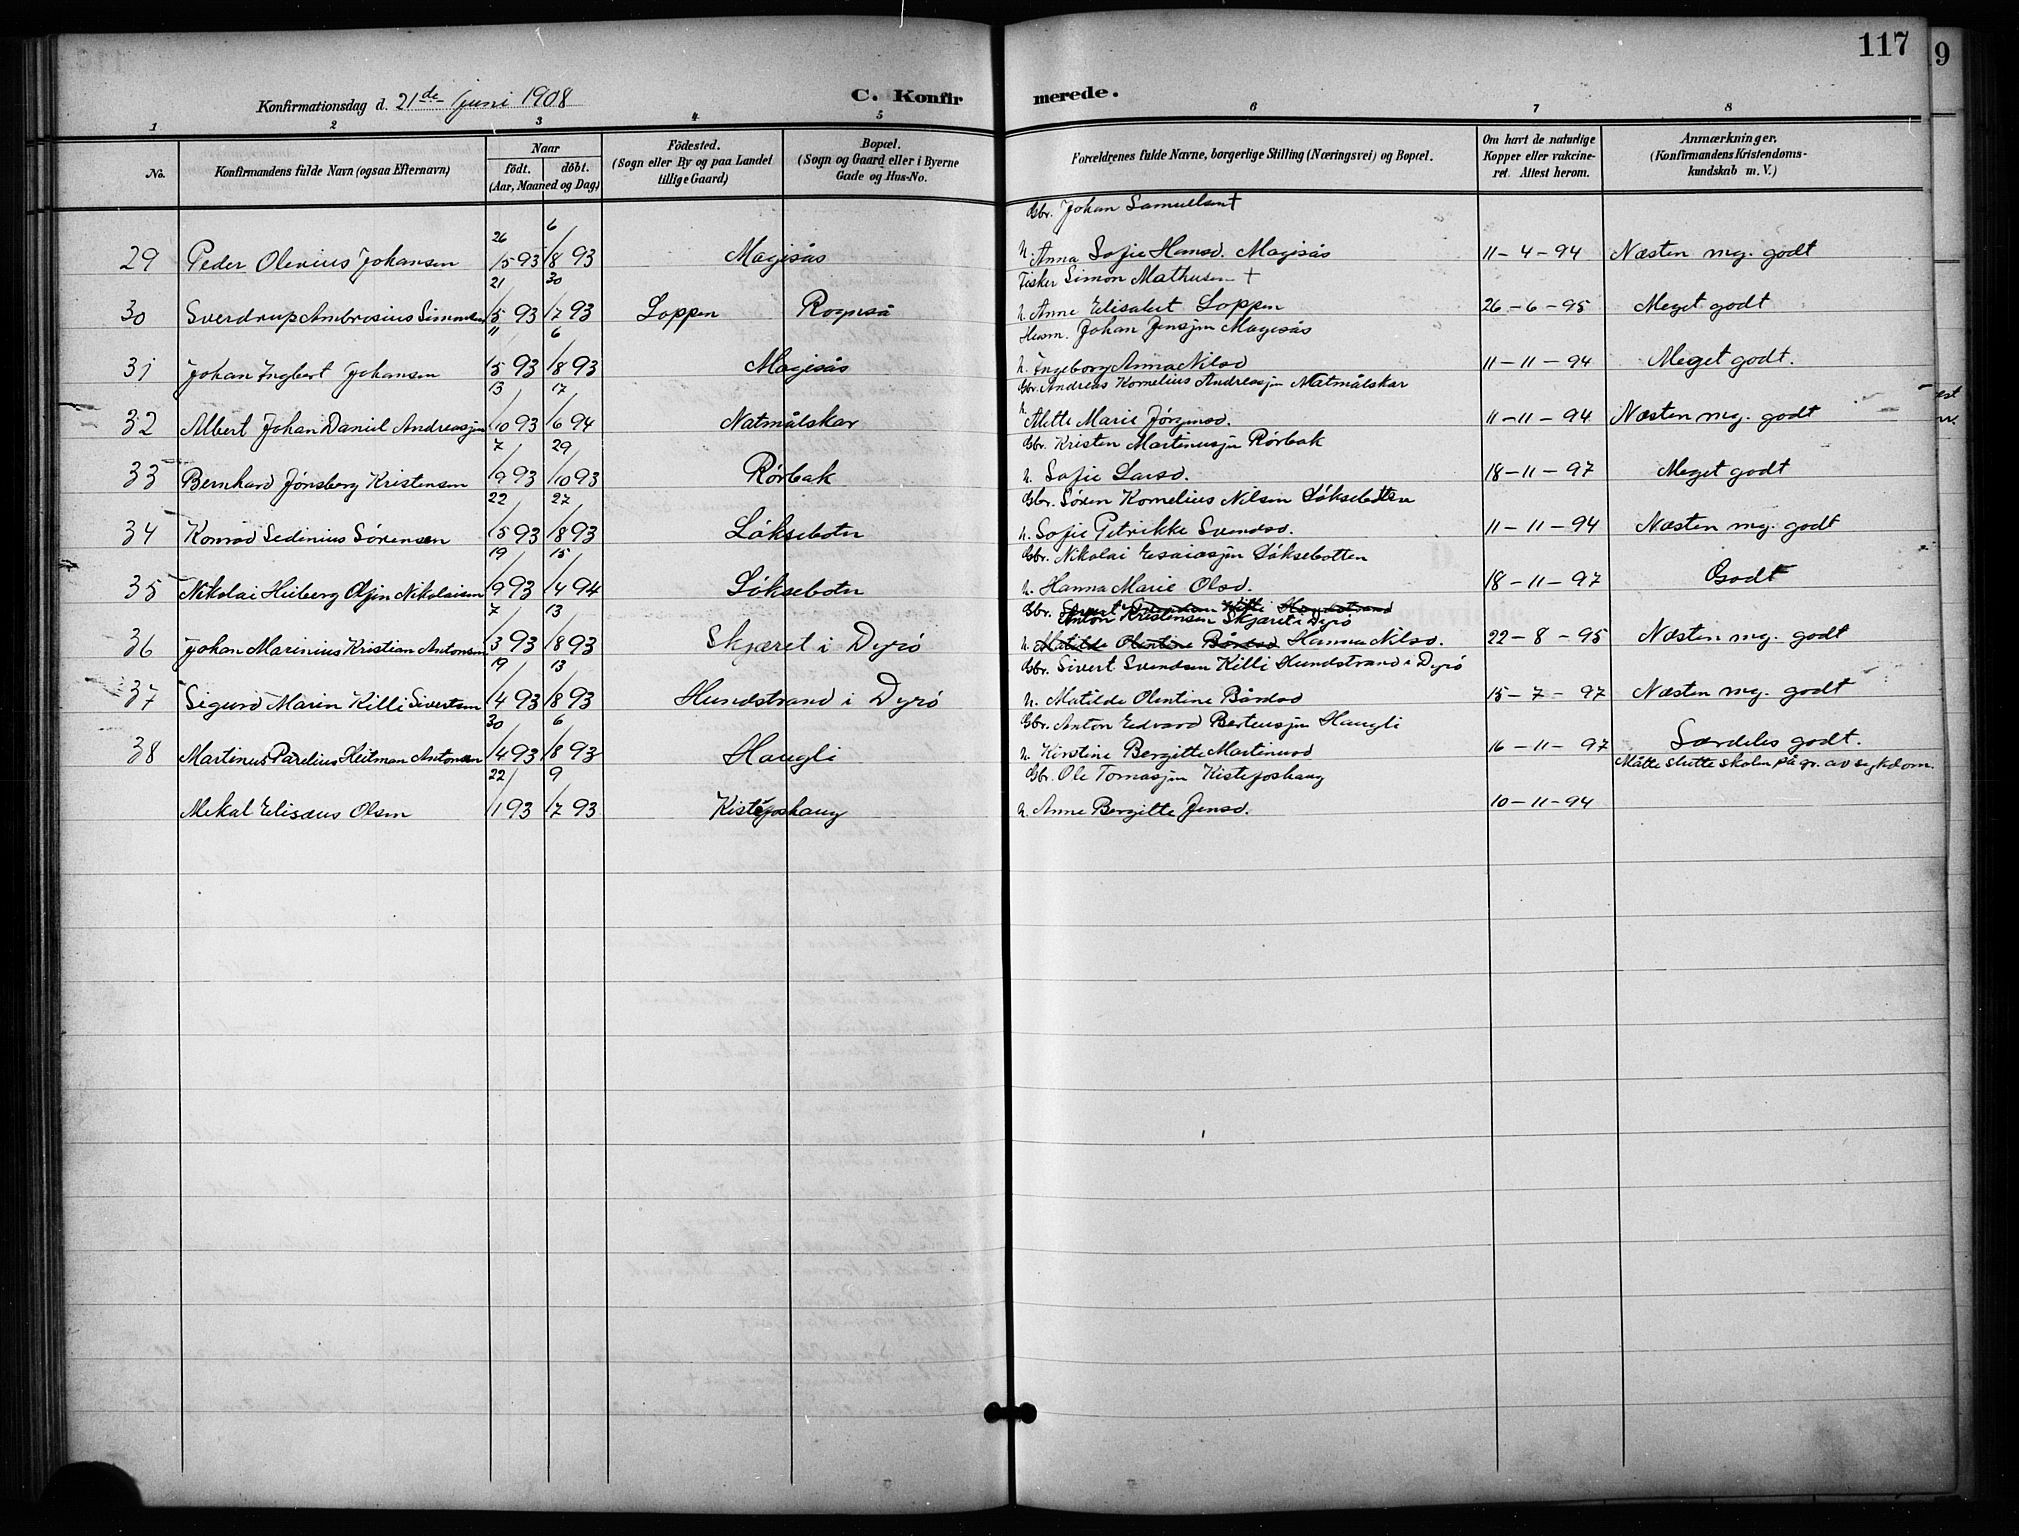 117
9
Konfirmationsdag d. 21de Juni 1908
C. Konfirmerede.
1 2 3 4 5 6 7 8
No.
Konfirmandens fulde Navn (ogsaa Efternavn)
Naar
født. døbt.
(Aar, Maaned og Dag)
Fødested.
(Sogn eller By og paa Landet
tillige Gaard)
Bopæl.
(Sogn og Gaard eller i Byerne
Gade og Hus-No.
Forældrenes fulde Navne, borgerlige Stilling (Næringsvei) og Bopæl.
Om havt de naturlige
Kopper eller vakcine-
ret. Attest herom.
Anmærkninger.
(Konfirmandens Kristendoms-
kundskab m. V.)
Gbr. Johan Samuelsen †
29 Peder Olenius Johansen 26/5 93 6/8 93 Magisås h. Anna Sofie Hansd. Magisås 11-4-94 Næsten mg. godt
Fisker Simon Mathusen †
30 Sverdrup Ambrosius Simonsen 21/5 93 30/7 93 Loppen Rognså h. Anne Elisabet Loppen 26-6-95 Meget godt
Husm. Johan Jensen Magisås
31 Johan Ingbert Johansen 11/5 93 6/8 93 Magisås h. Ingeborg Anna Nilsd 11-11-94 Meget godt.
Gbr. Andreas Kornelius Andreasjen Natmålskar
32 Albert Johan Daniel Andreasjen 13/10 93 17/6 94 Natmålskar h. Alette Marie Jørgensd. 11-11-94 Næsten mg. godt
Gbr. Kristen Martinusjen Rørbak
33 Bernhard Jønsberg Kristensen 7/9 93 29/10 93 Rørbak h. Sofie Larsd. 18-11-97 Meget godt
Gbr. Søren Kornelius Nilsen Løksebotten
34 Konrad Sedenius Sørensen 22/5 93 27/8 93 Løksebotn h. Sofie Petrikke Svendsd. 11-11-94 Næsten mg. godt
Gbr. Nikolai Esaiasjen Løksebotten
35 Nikolai Heiberg Oljen Nikolaisen 19/9 93 15/4 94 Løksebotn h. Hanna Marie Olsd. 18-11-97 Godt
Gbr. Sivert Svendsen Killi Hundstrand
Anton Kristensen Skjæret i Dyrø
36 Johan Marinius Kristian Antonsen 7/3 93 13/8 93 Skjæret i Dyrö h. Matilde Olentine Bårdsd Hanna Nilsd. 22-8-95 Næsten mg. godt
Gbr. Sivert Svendsen Killi Hundstrand i Dyrö
37 Sigurd Marin Killi Sivertsen 19/4 93 13/8 93 Hundstrand i Dyrö h. Matilde Olentine Bårdsd 15-7-97 Næsten mg. godt
Gbr. Anton Edvard Berteusjen Haugli
38 Martinus Parelius Heitman Antonsen 30/4 93 6/8 93 Haugli h. Kirstine Bergitte Martinusd 16-11-97 Særdeles godt.
Gbr. Ole Tomasjen Kistefoshaug Måtte slutte skolen på gr. av sygdom.
Mekal Elisæus Olsen 22/1 93 9/7 93 Kistefoshaug h. Anne Bergitte Jensd. 10-11-94